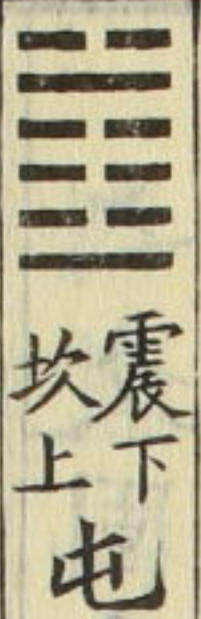 震下
坎上
屯